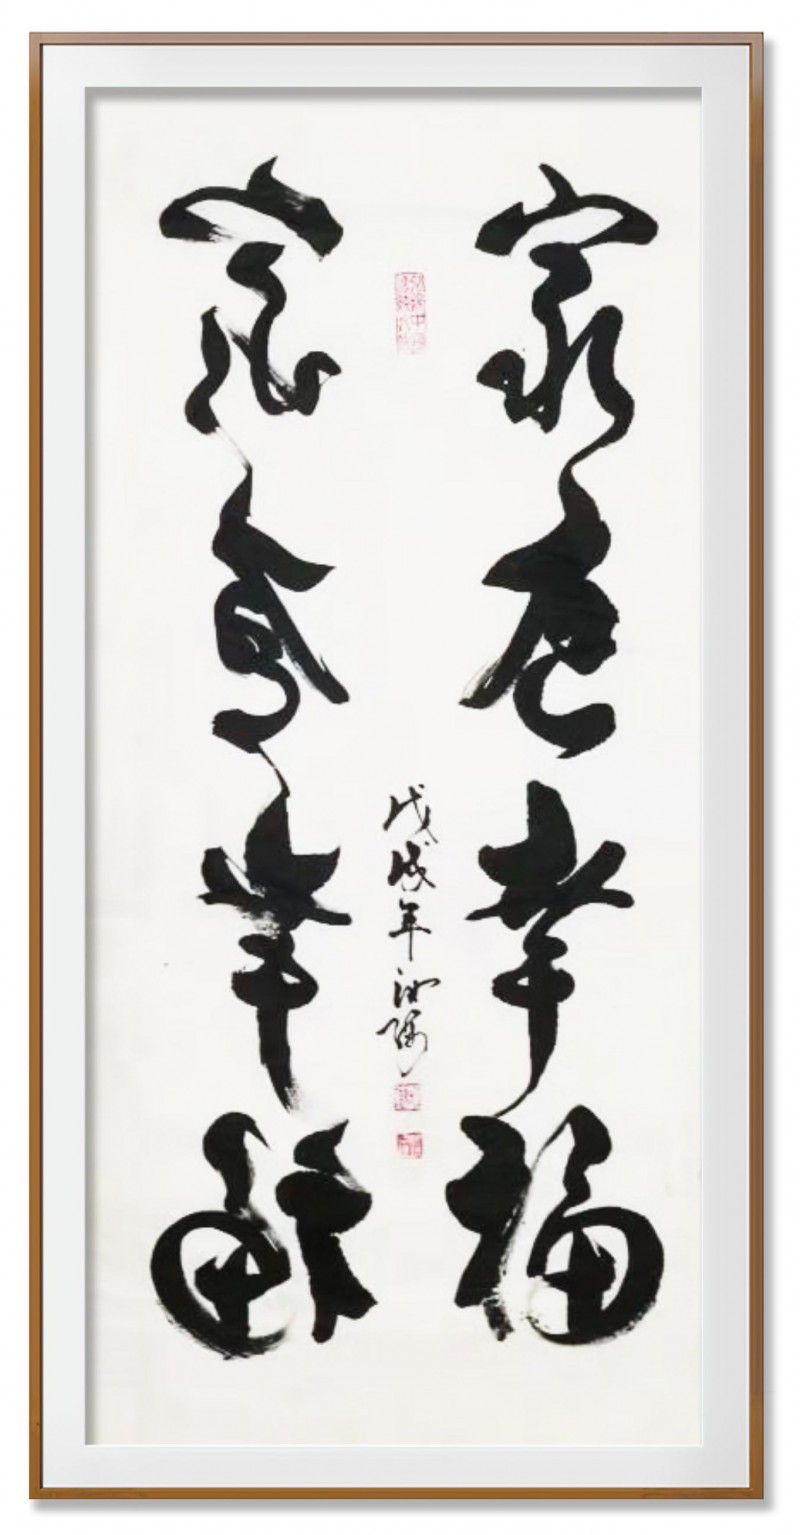 家庭幸福
戊戌年
家庭幸福